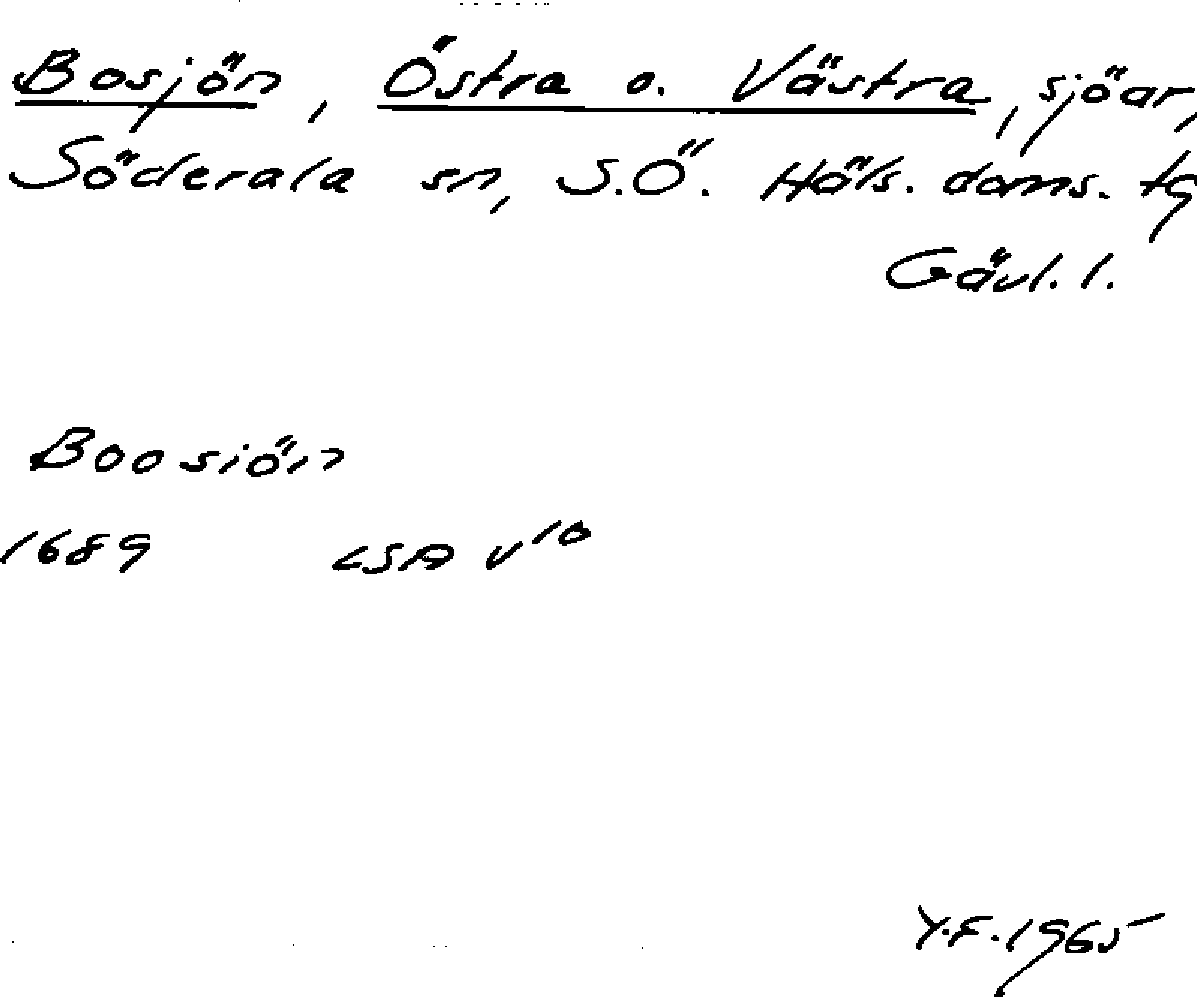 Bosjön, Östra o. Västra, sjöar,
Söderala sn, S.Ö. Häls. doms. tg
Gävl. l.
Boosiön
1689 LSA v10
Y.F. 1965